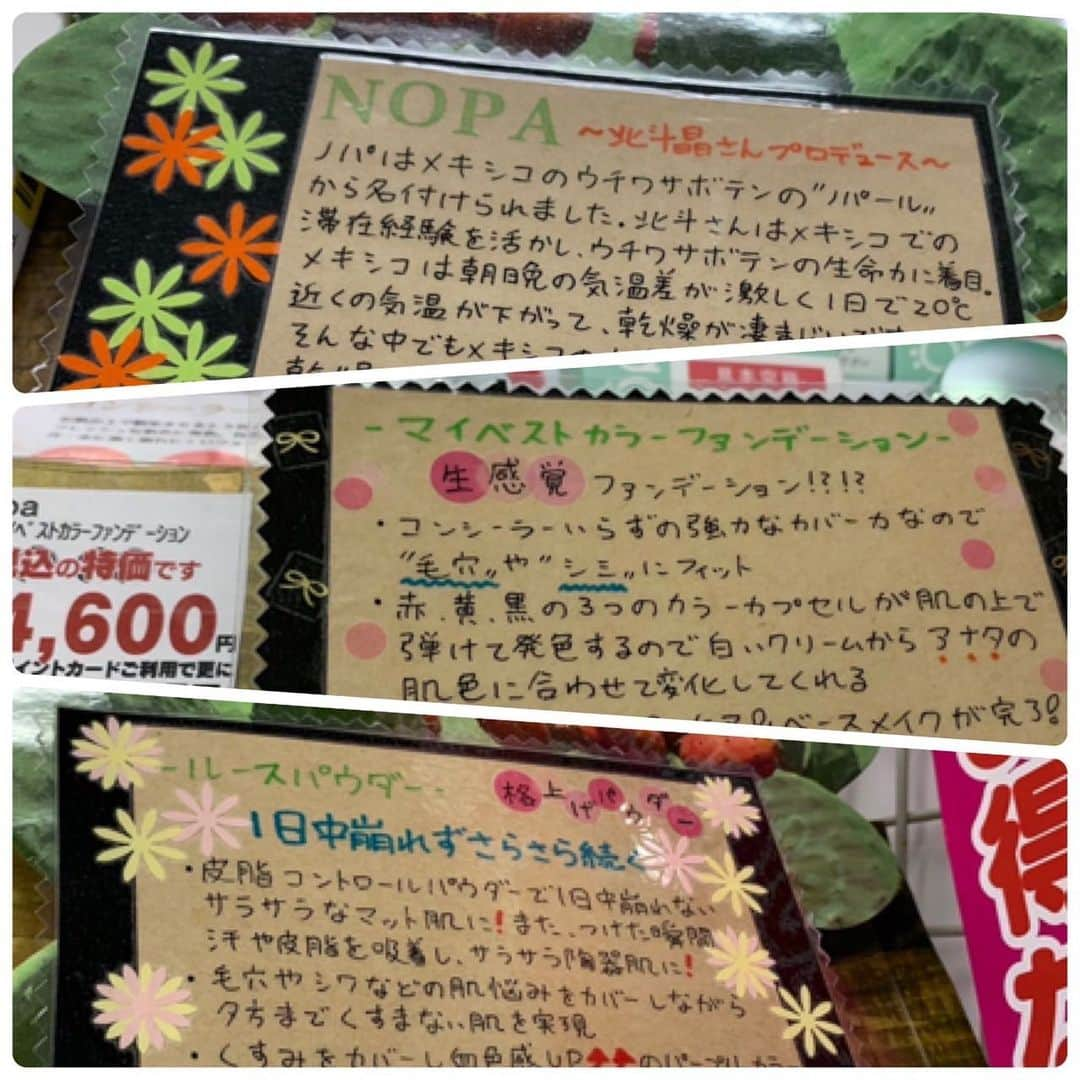 NOPA ～北斗晶さんプロデュース～
ノパはメキシコのウチワサボテンの"ノパール"
から名付けられました。北斗さんはメキシコでの
滞在経験を活かし、ウチワサボテンの生命力に着目。
メキシコは朝日晩の気温差が激しく1日で20℃
近くの気温が下がって、乾燥が凄まじい
そんな中でもメキシコの
-マイベストカラーファンデーション-
生感覚 ファンデーション!?!?
・コンシーラーいらずの強力なカバー力なので
"毛穴"や"シミ"にフィット
・赤、黄、黒の3つのカラーカプセルが肌の上で
弾けて発色するので白いクリームからアナタの
肌色に合わせて変化してくれる
ベースメイクが完了!
ベストカラーファンデーション
込の特価です
4,600円
イントカードご利用で更に
-ルースパウダー-
格上げパウダー
1日中崩れずさらさら続く
・皮脂コントロールパウダーで1日中崩れない
サラサラなマット肌に!また、つけた瞬間
汗や皮脂を吸着し、サラサラ陶器肌に!
・毛穴やシワなどの肌悩みをカバーしながら
夕方までくすまない肌を実現
・くすみをカバーし血色感UP↑↑のパープルカラー
得な